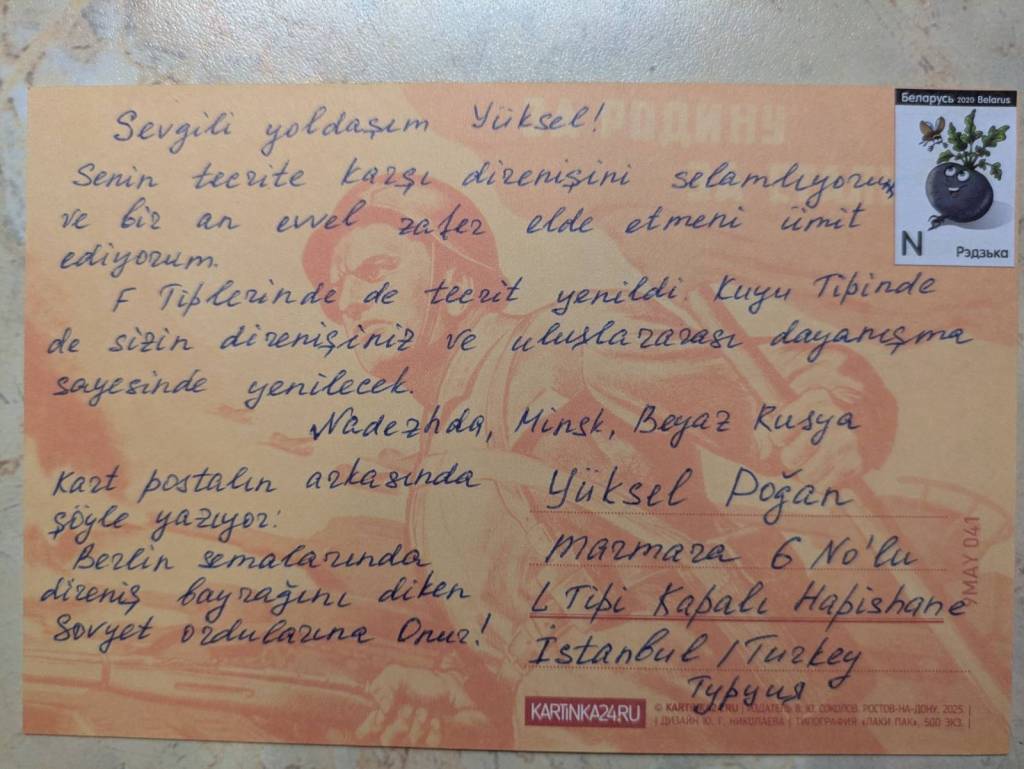 Sevgili yoldaşım Yüksel!
Senin tecrite karşı direnişini selamlıyorum
ve bir an evvel zafer elde etmeni ümit
ediyorum.
F Tiplerinde de tecrit yenildi. Kuyu Tipinde
de sizin direnişiniz ve uluslararası dayanışma
sayesinde yenilecek.
Nadezhda, Minsk, Beyaz Rusya
Kart postalın arkasında
şöyle yazıyor:
Berlin semalarında
direniş bayrağını diken
Sovyet ordularına Onur!
Беларусь 2020 Belarus
N
Рэдзька
РОДИНУ
Yüksel Doğan
Marmara 6 No'lu
L Tipi Kapalı Hapishane
İstanbul / Turkey
Турция
9MAY 041
KARTINKA24.RU
© KARTINKA24.RU | ИЗДАТЕЛЬ В. Ю. СОКОЛОВ. РОСТОВ-НА-ДОНУ, 2025.
| ДИЗАЙН Ю. Г. НИКОЛАЕВА | ТИПОГРАФИЯ «ЛАКИ ПАК», 500 ЭКЗ.